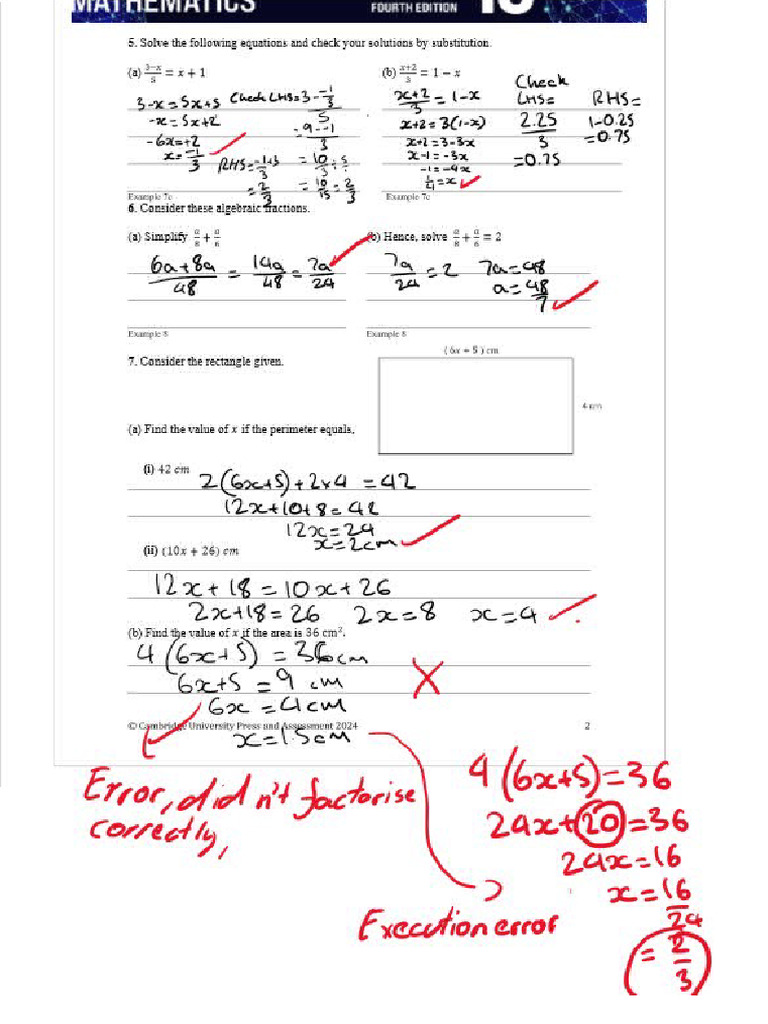 MATHEMATICS
FOURTH EDITION 10
5. Solve the following equations and check your solutions by substitution.
(a) (3-x)/5 = x + 1
(b) (x+2)/3 = 1 − x
3-x=5x+5
-x=5x+2
-6x=+2
x=-1/3
Check LHS=3--1/3 / 5
=9--1/3
=10/3 ÷ 5
=10/15=2/3
RHS=-1+3/3
=2/3
x+2/3=1-x
x+2=3(1-x)
x+2=3-3x
x-1=-3x
-1=-4x
1/4=x
Check
LHS=
2.25/3
=0.75
RHS=
1-0.25
=0.75
Example 7c
Example 7c
6. Consider these algebraic fractions.
(a) Simplify a/8 + a/6
(b) Hence, solve a/8 + a/6 = 2
6a+8a/48 = 14a/48 = 7a/24
7a/24=2 7a=48
a=48/7
Example 8
Example 8
7. Consider the rectangle given.
(6x + 5) cm
4 cm
(a) Find the value of x if the perimeter equals.
(i) 42 cm
2(6x+5)+2×4=42
12x+10+8=42
12x=24
x=2cm
(ii) (10x + 26) cm
12x+18=10x+26
2x+18=26 2x=8 x=4
(b) Find the value of x if the area is 36 cm².
4(6x+5)=36cm
6x+5=9cm
6x=4cm
© Cambridge University Press and Assessment 2024
2
x=1.5cm
Error, didn't factorise
correctly,
Execution error
4(6x+5)=36
24x+20=36
24x=16
x=16/24
=2/3